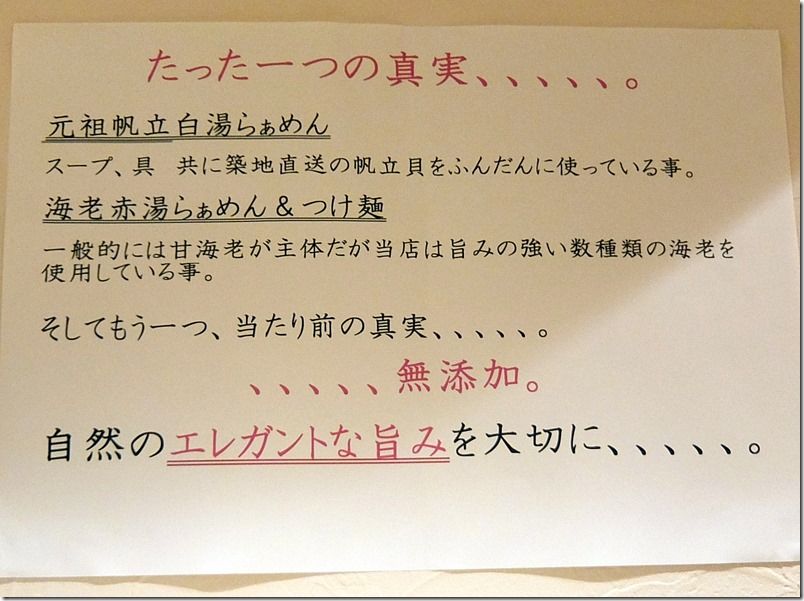 たった一つの真実、、、、、。
元祖帆立白湯らぁめん
スープ、具　共に築地直送の帆立貝をふんだんに使っている事。
海老赤湯らぁめん＆つけ麺
一般的には甘海老が主体だが当店は旨みの強い数種類の海老を
使用している事。
そしてもう一つ、当たり前の真実、、、、、。
、、、、、無添加。
自然のエレガントな旨みを大切に、、、、、。